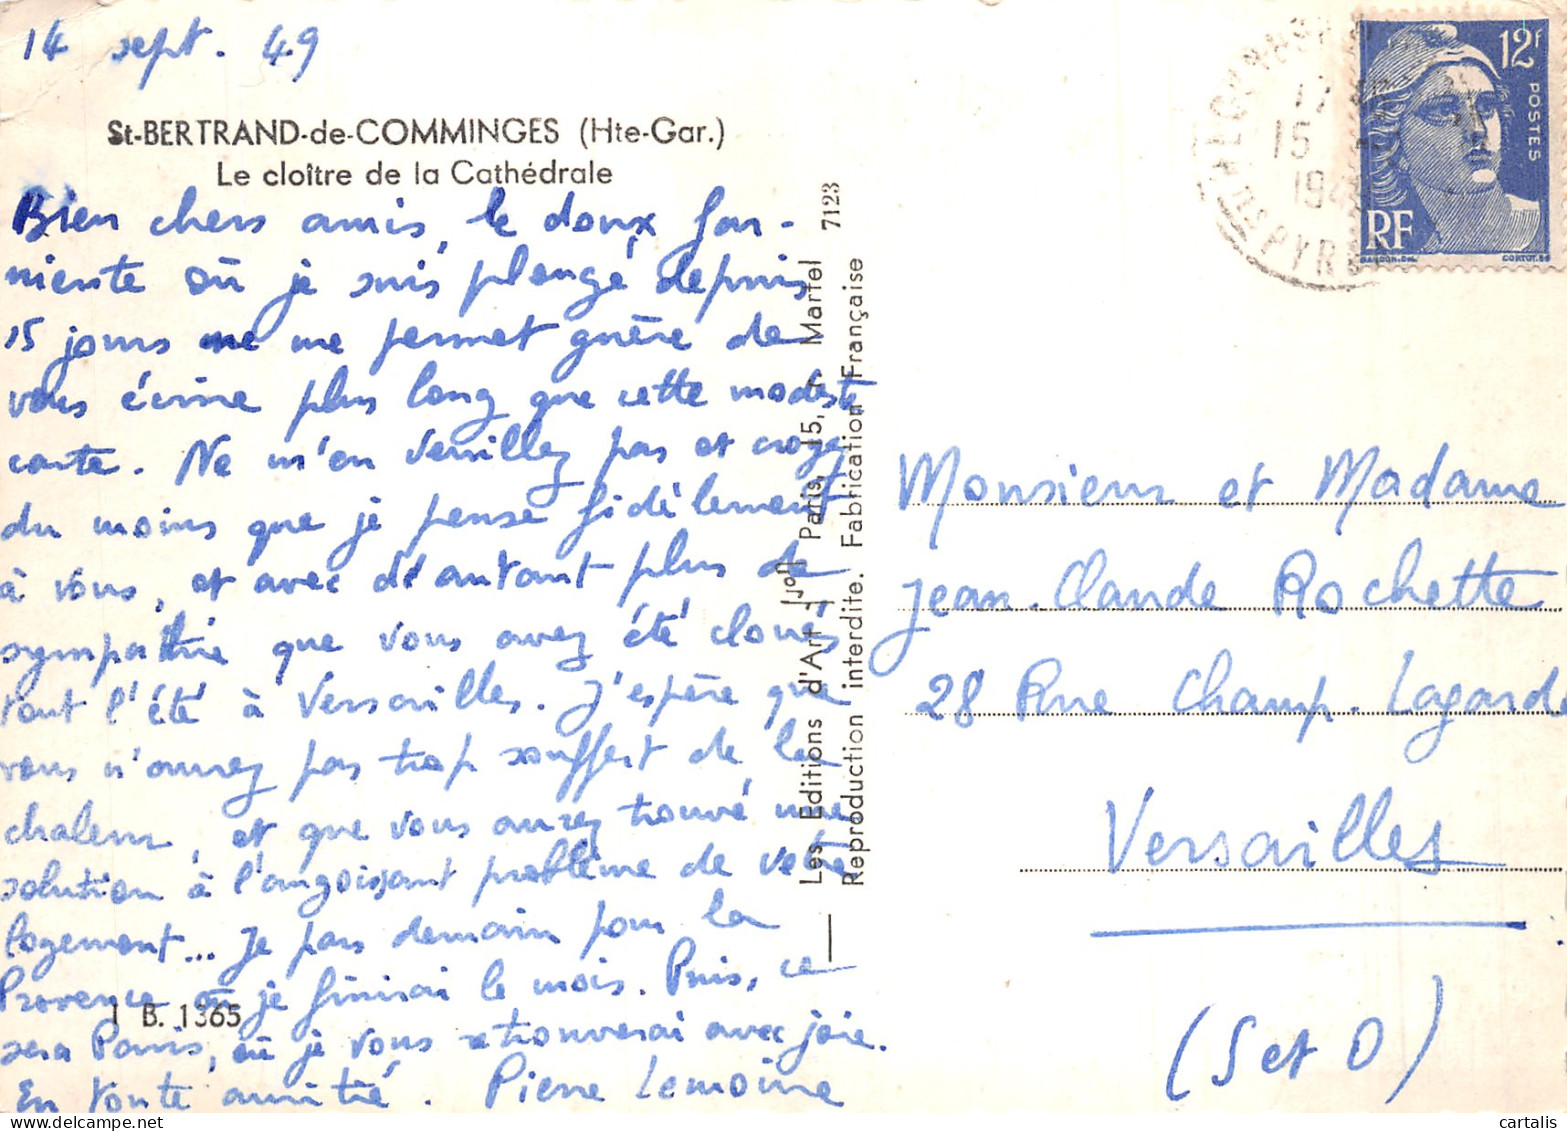 14 sept. 49
St-BERTRAND-de-COMMINGES (Hte-Gar.)
Le cloître de la Cathédrale
Bien chers amis, le doux far-
niente où je suis plongé depuis
15 jours ne me permet guère de
vous écrire plus long que cette modeste
carte. Ne m'en veuillez pas et croyez
du moins que je pense fidèlement
à vous, et avec d'autant plus de
sympathie que vous avez été cloués
tout l'été à Versailles. J'espère que
vous n'aurez pas trop souffert de la
chaleur, et que vous aurez trouvé une
solution à l'angoissant problème de votre
logement... Je pars demain pour la
Provence où je finirai le mois. Puis, ce
I B. 1365
sera Paris, où je vous retrouverai avec joie.
En toute amitié. Pierre Lemoine
Les Editions d'Art "Jon" Paris, 15, r. Martel 7123
Reproduction interdite. Fabrication Française
12F
POSTES
RF
GANDON-DEL.
CORTOT.SC
17
15
194
PYR
Monsieur et Madame
Jean-Claude Rochette
28 Rue Champ-Lagarde
Versailles
(S et O)
cartalis